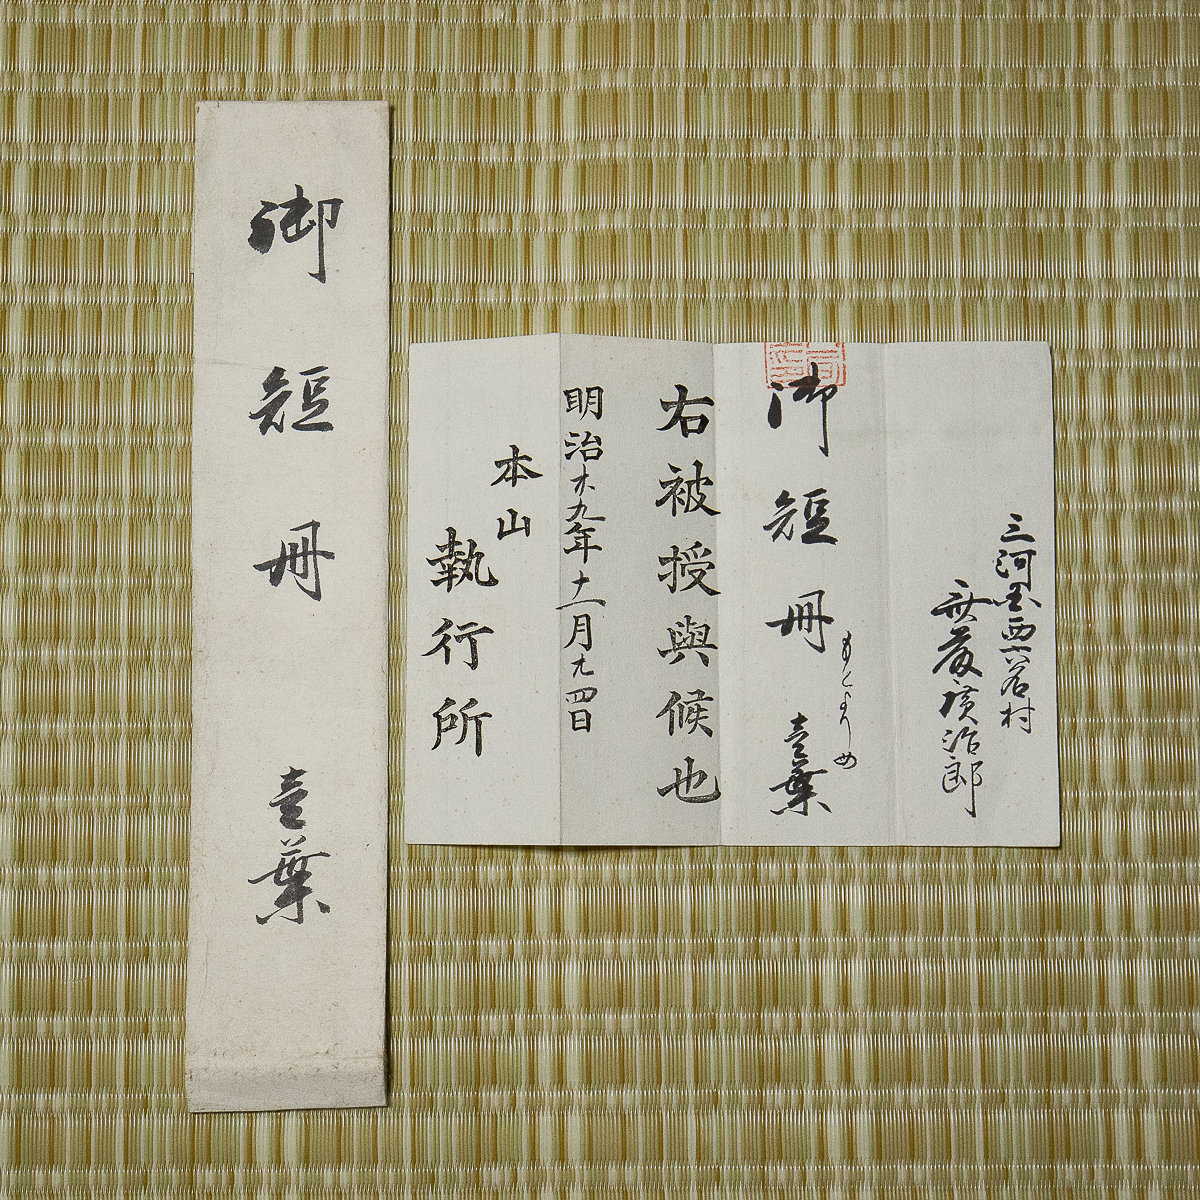 御短冊 壹葉
三河国西
治郎
御短冊 壹葉
右被授與候也
明治九年十一月四日
本山
執行所